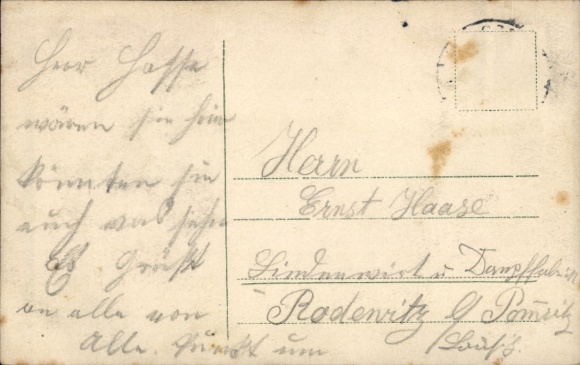 Herr Hasse
wären sie hier
könnten sie
auch was sehn
Es Grüßt
an alle von
Alle.
Herrn
Ernst Haase
Lindenwirt u Dampf
Rodewitz b Pommritz